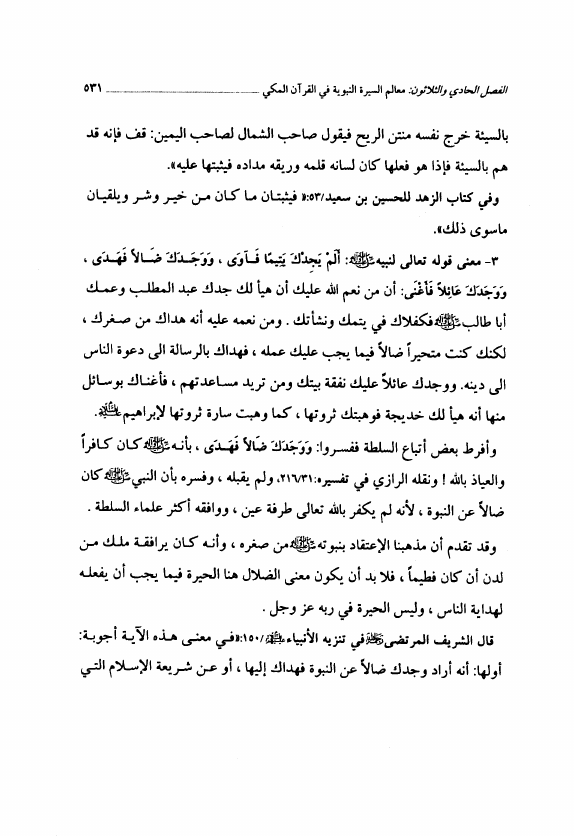 الفصل الحادي والثلاثون: معالم السيرة النبوية في القرآن المكي ٥٣١
بالسيئة خرج نفسه منتن الريح فيقول صاحب الشمال لصاحب اليمين: قف فإنه قد
هم بالسيئة فإذا هو فعلها كان لسانه قلمه وريقه مداده فيثبتها عليه».
وفي كتاب الزهد للحسين بن سعيد/٥٣:« فيثبتان ما كان من خير وشر ويلقيان
ماسوى ذلك».
٣- معنى قوله تعالى لنبيه ﷺ: أَلَمْ يَجِدْكَ يَتِيمًا فَآوَى ، وَوَجَدَكَ ضَالاً فَهَدَى ،
وَوَجَدَكَ عَائِلاً فَأَغْنَى: أن من نعم الله عليك أن هيأ لك جدك عبد المطلب وعمك
أبا طالب فكفلاك في يتمك ونشأتك . ومن نعمه عليه أنه هداك من صغرك ،
لكنك كنت متحيراً ضالاً فيما يجب عليك عمله ، فهداك بالرسالة الى دعوة الناس
الى دينه. ووجدك عائلاً عليك نفقة بيتك ومن تريد مساعدتهم ، فأغناك بوسائل
منها أنه هيأ لك خديجة فوهبتك ثروتها ، كما وهبت سارة ثروتها لإبراهيم .
وأفرط بعض أتباع السلطة ففسروا: وَوَجَدَكَ ضَالاً فَهَدَى ، بأنه ﷺ كان كافراً
والعياذ بالله ! ونقله الرازي في تفسيره:٢١٦/٣١، ولم يقبله ، وفسره بأن النبي ﷺ كان
ضالاً عن النبوة ، لأنه لم يكفر بالله تعالى طرفة عين ، ووافقه أكثر علماء السلطة .
وقد تقدم أن مذهبنا الإعتقاد بنبوته ﷺ من صغره ، وأنه كان يرافقة ملك من
لدن أن كان فطيماً ، فلا بد أن يكون معنى الضلال هنا الحيرة فيما يجب أن يفعله
لهداية الناس ، وليس الحيرة في ربه عز وجل .
قال الشريف المرتضى في تنزيه الأنبياء /١٥٠:«في معنى هذه الآية أجوبة:
أولها: أنه أراد وجدك ضالاً عن النبوة فهداك إليها ، أو عن شريعة الإسلام التي